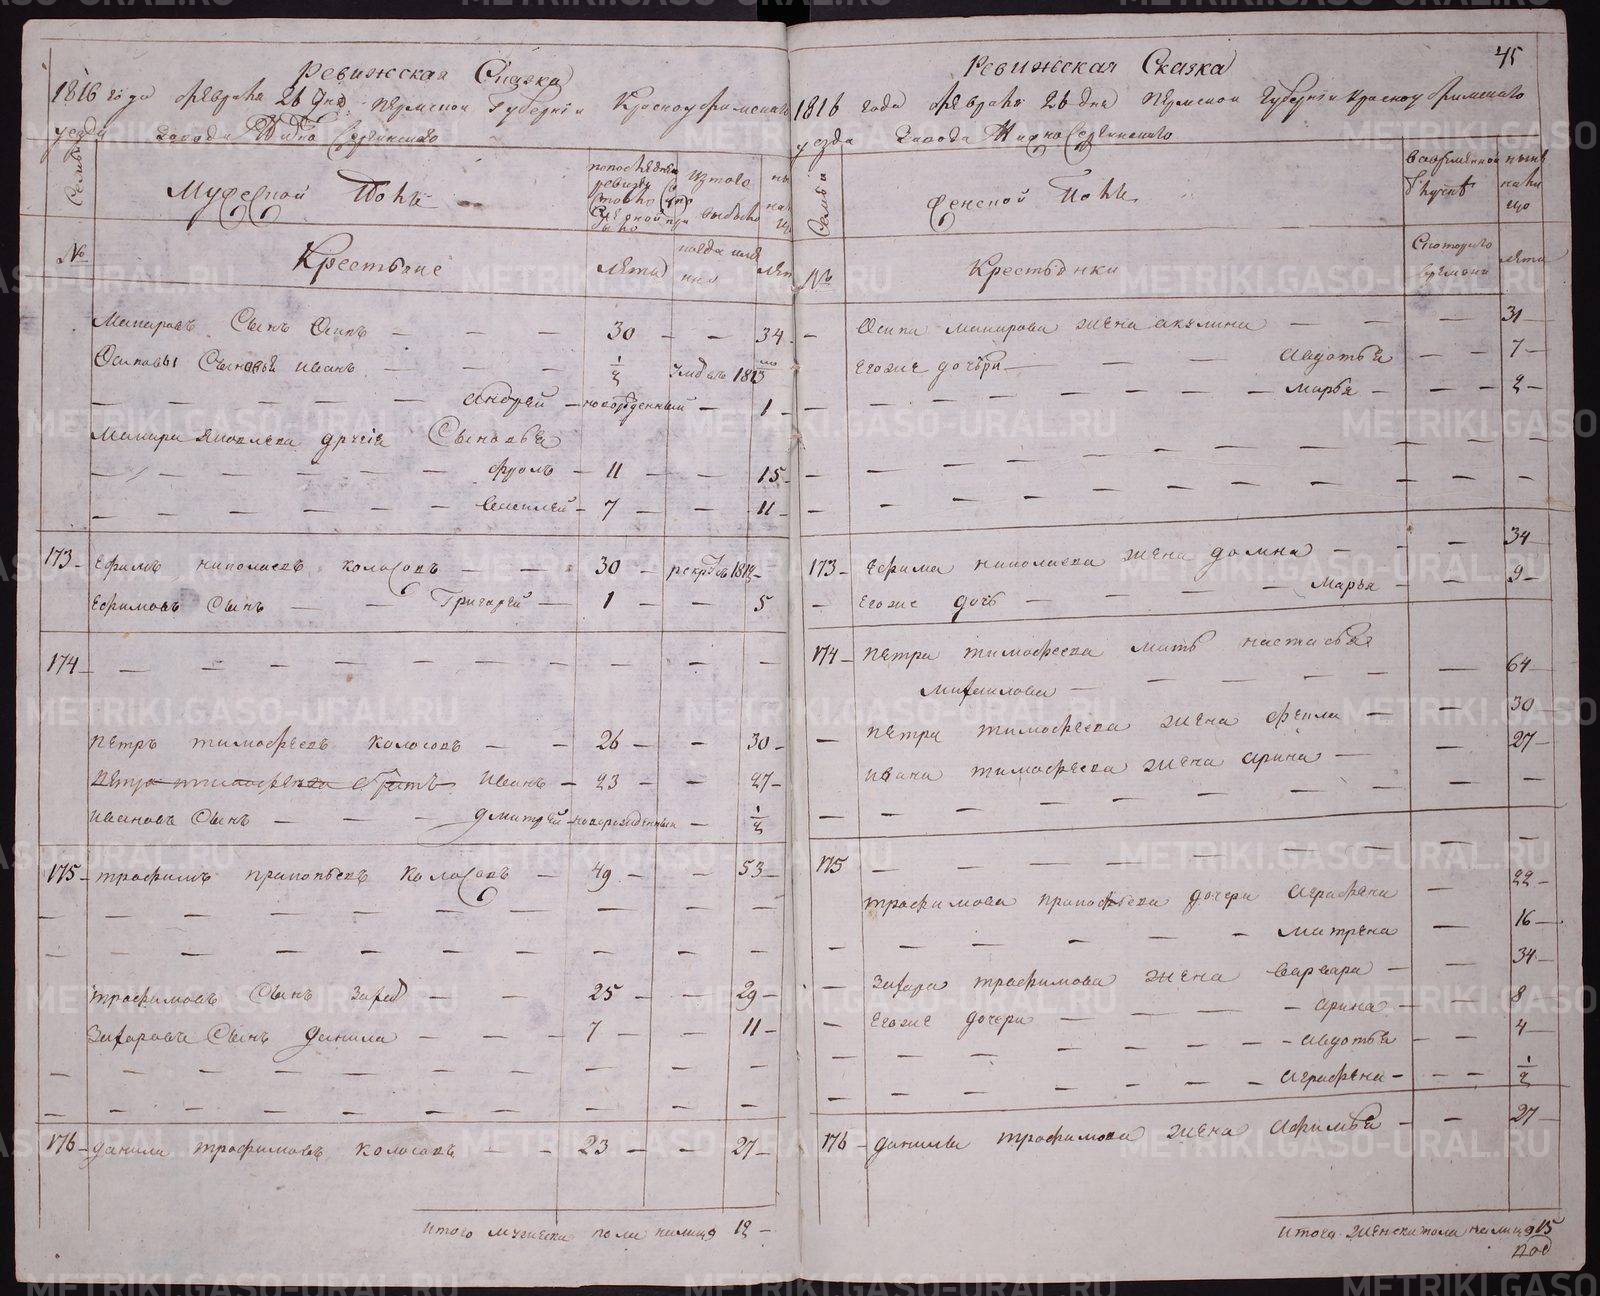 45
Ревижская Сказка
1816 года февраля 26 дня Пермской Губернiи Красноуфимскаго
уезда завода Нижно Сергинскаго
Семьи
Мужеской Полъ
по последней ревизiи состояло
Из того выбыло
ныне на лицо
№
Крестьяне
лета
когда имянно
лета
Макаровъ Сынъ Осипъ — — — 30 — — 34
Осиповы Сыновья Иванъ — — — 1/2 умеръ 1813
— — — — — Андрей — новорожденный — 1
Макара Яковлева другiе Сыновья
— — — — — Фролъ — 11 — — 15
— — — — — Василей — 7 — — 11
173 Ефимъ николаевъ колосовъ — — 30 — рекрутъ 1812
Ефимовъ Сынъ — — Григорей — 1 — — 5
174 — — — — — — — — — —
Петръ тимофеевъ колосовъ — — 26 — — 30
Петра тимофеева братъ Иванъ — 23 — — 27
Ивановъ Сынъ — — — дмитрей — новорожденный — 1/2
175 трофимъ прокопьевъ колосовъ — 49 — — 53
трофимовъ Сынъ Захаръ — — 25 — — 29
Захаровъ Сынъ данила — — — 7 — — 11
176 данила трофимовъ колосовъ — — 23 — — 27
Итого мужеска пола налицо 12
Ревижская Сказка
1816 года февраля 26 дня Пермской Губернiи Красноуфимскаго
уезда завода Нижно Сергинскаго
Семьи
Женской Полъ
во временной отлучке
ныне на лицо
№
Крестьянки
С котораго времяни
лета
Осипа макарова жена акулина — — — 31
Егоже дочери — — — Авдотья — — 7
— — — — — Марья — — 2
173 Ефима николаева жена домна — — — 34
Егоже дочь — — — Марья — — 9
174 Петра тимофеева мать настасья
михаилова — — — — — 64
Петра тимофеева жена фекла — — 30
Ивана тимофеева жена арина — — 27
175 — — — — — — — —
трофимова прокофьева дочери Аграфена — 22
— — — — — матрена — 16
Захара трофимова жена варвара — — 34
Егоже дочери — — — арина — — 8
— — — — — авдотья — — 4
— — — — — аграфена — — 1/2
176 данилы трофимова жена Афимья — — 27
Итого женска пола налицо 15
METRIKI.GASO-URAL.RU